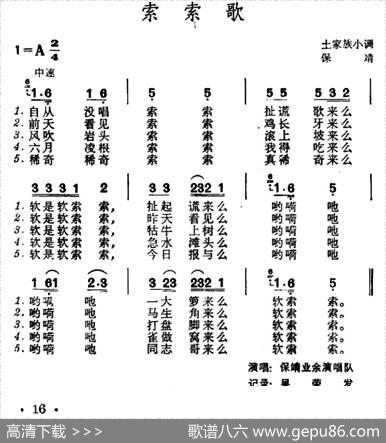 索索歌
1=A 2/4
土家族小调
保靖
中速
1·6 1 6 5 5 5 5 3 2 1
1. 自从 没唱 索 索 扯谎 歌来么
2. 前天 看见 索 索 鸡长 牙来么
3. 风吹 岩头 索 索 滚上 坡来么
4. 六月 凌根 索 索 我得 吃来么
5. 稀奇 稀奇 索 索 真稀 奇来么
3 3 3 1 2 3 3 23 232 1 1·6 5
1. 软是软索 索, 扯起 谎来么 哟嗬 吔
2. 软是软索 索, 昨天 看见么 哟嗬 吔
3. 软是软索 索, 牯牛 上树么 哟嗬 吔
4. 软是软索 索, 急水 滩头么 哟嗬 吔
5. 软是软索 索, 今日 报与么 哟嗬 吔
1 61 2·3 3 23 232 1 1·6 5
1. 哟嗬 吔 一大 箩来么 软索 索。
2. 哟嗬 吔 马生 角来么 软索 索。
3. 哟嗬 吔 打盘 脚来么 软索 索。
4. 哟嗬 吔 雀做 窝来么 软索 索。
5. 哟嗬 吔 同志 哥来么 软索 索。
演唱：保靖业余演唱队
记录：
· 16 ·
高清下载 >>>
歌谱八六 www.gepu86.com